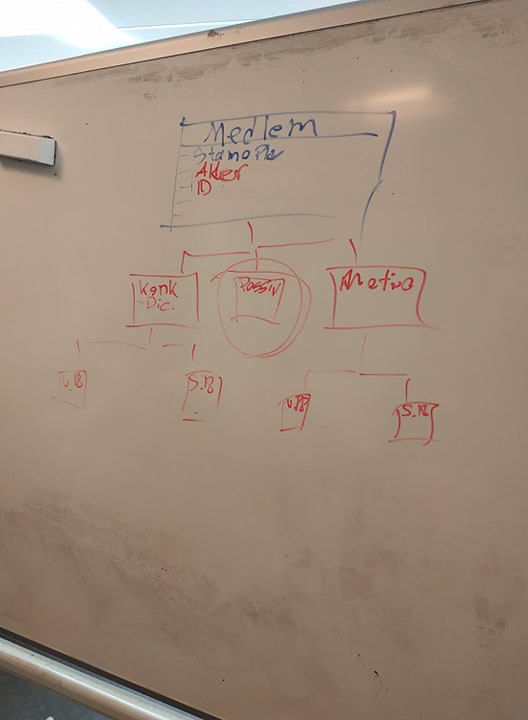 Medlem
- Stamo Pkr
- Alder
- ID
Konk
-Dic.
Passiv
Motivo
U.18
S.18
U.18
S.18